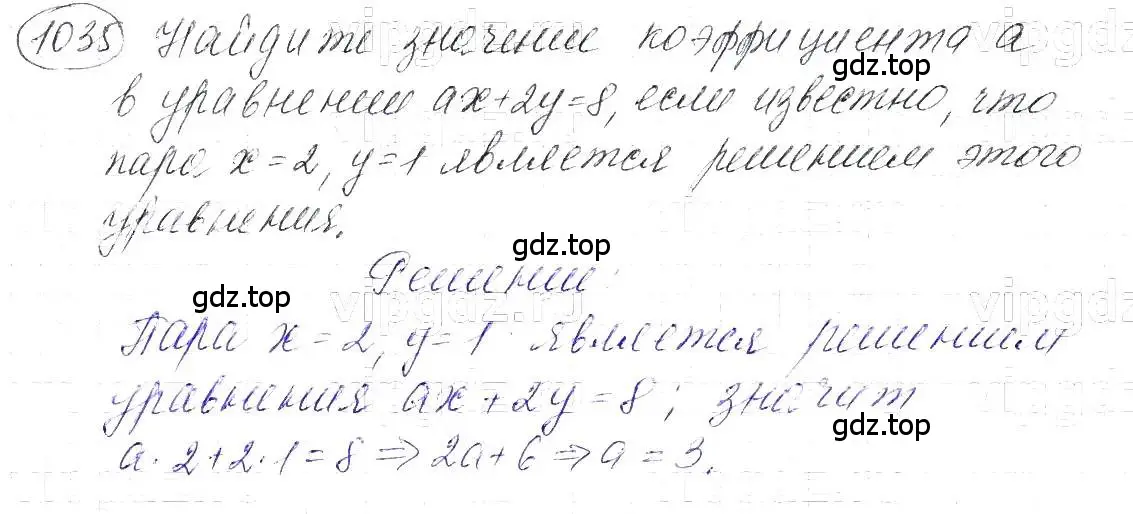 1035 Найдите значение коэффициента a
в уравнении ax+2y=8, если известно, что
пара x=2, y=1 является решением этого
уравнения.
Решение:
Пара x=2, y=1 является решением
уравнения ax+2y=8; значит
a·2+2·1=8⇒2a+6⇒a=3.
gdz.top
gdz.top
gdz.top
gdz.top
gdz.top
vipgdz.ru
vipgdz
vipgdz.ru
vipgdz